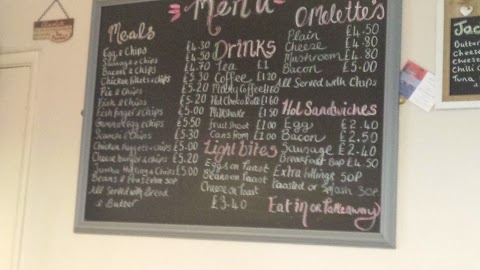 Menu
Meals
Egg & Chips £4.30
Sausage & Chips £4.50
Bacon & Chips £5.20
Chicken & Chips £5.20
Pie & Chips £5.20
Fish & Chips £5.20
Fish fingers & Chips £5.00
& Chips £5.50
Scampi & Chips £5.30
Chicken Nuggets & Chips £5.00
Cheese burger & Chips £5.20
& Chips £5.00
Beans & Peas Extra 50P
All Served with Bread
& Butter
Drinks
Tea £1
Coffee £1.20
Milky Coffee £1.60
Hot Chocolate £1.60
Milkshake £1.50
Fruit shoot £1.00
Cans from £1.00
Light bites
Eggs on Toast
Beans on Toast
Cheese on Toast
£3.40
Omelette's
Plain £4.50
Cheese £4.80
Mushroom £4.80
Bacon £5.00
All Served with Chips
Hot Sandwiches
Egg £2.40
Bacon £2.50
Sausage £2.40
Breakfast Bap £4.50
Extra fillings 50P
Toasted or Splash 30P
Eat in or Takeaway
Jac
Butter
Cheese
Cheese
Chilli
Tuna